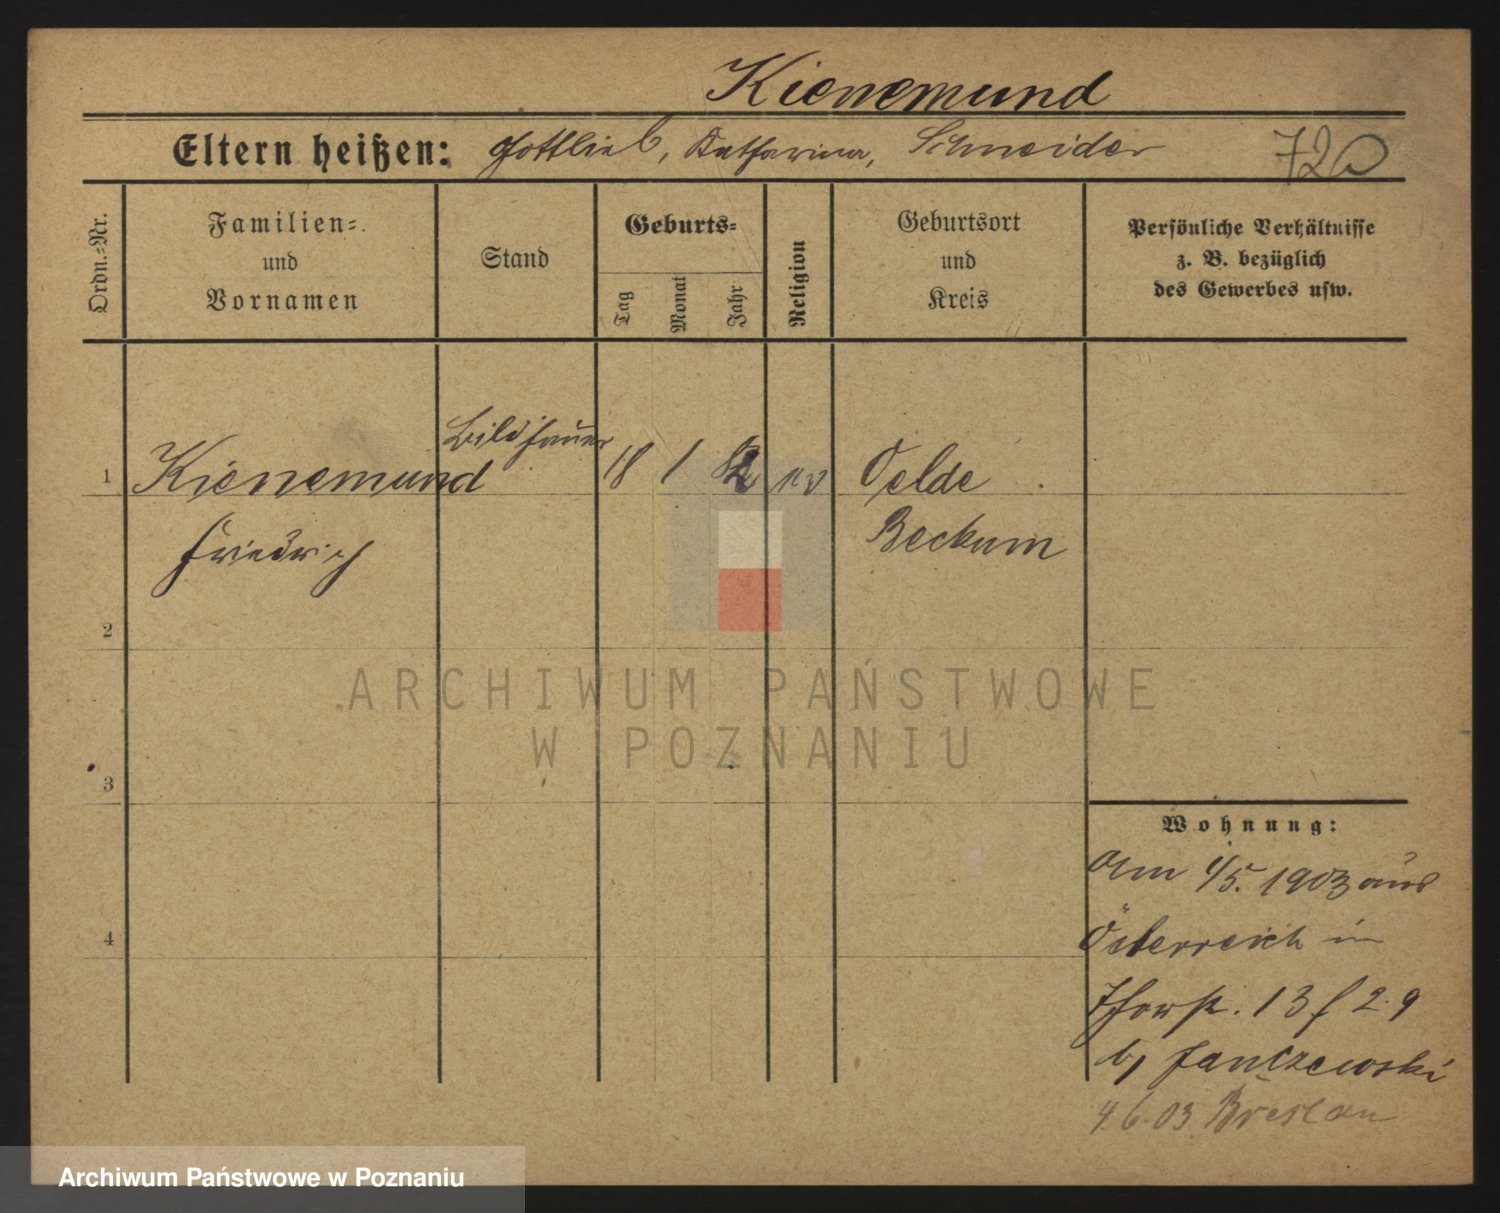 Kienemund
Eltern heißen: Gottlieb, Katharina, Schneider 720
Ordn.-Nr.
Familien-
und
Vornamen
Stand
Geburts-
Tag
Monat
Jahr
Religion
Geburtsort
und
Kreis
Persönliche Verhältnisse
z. B. bezüglich
des Gewerbes usw.
1 Kienemund Bildhauer 18 1 ev Oelde
Friedrich Beckum
2
3
4
Wohnung:
Am 1/5. 1903 aus
Österreich in
13 2.9
b/ Janczewski
4.6.03 Breslau
ARCHIWUM PAŃSTWOWE
W POZNANIU
Archiwum Państwowe w Poznaniu